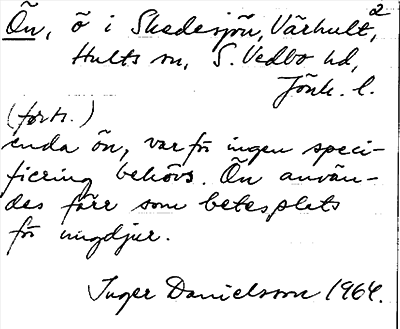 Ön, ö i Skedesjön, Värhult,²
Hults sn, S. Vedbo hd,
Jönk. l.
(forts.)
enda ön, varför ingen speci-
ficering behövs. Ön använ-
des förr som betesplats
för ungdjur.
Inger Danielsson 1964.